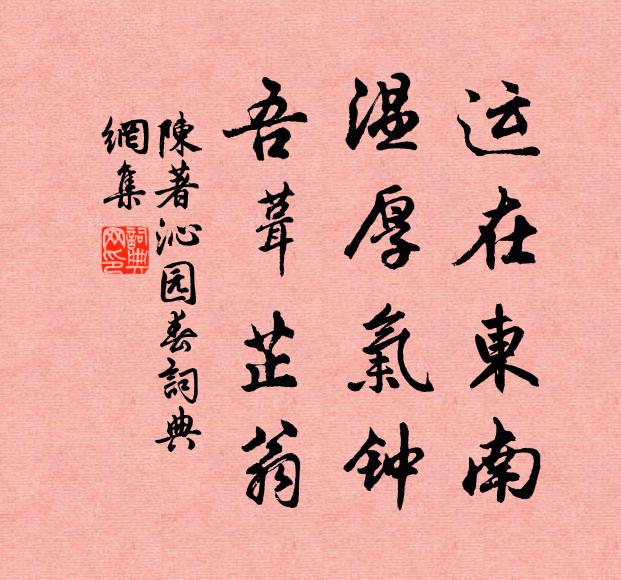 运在東南
温厚氣钟
吾葺芷翁
陳著沁园春詞典
網集
詞典网印